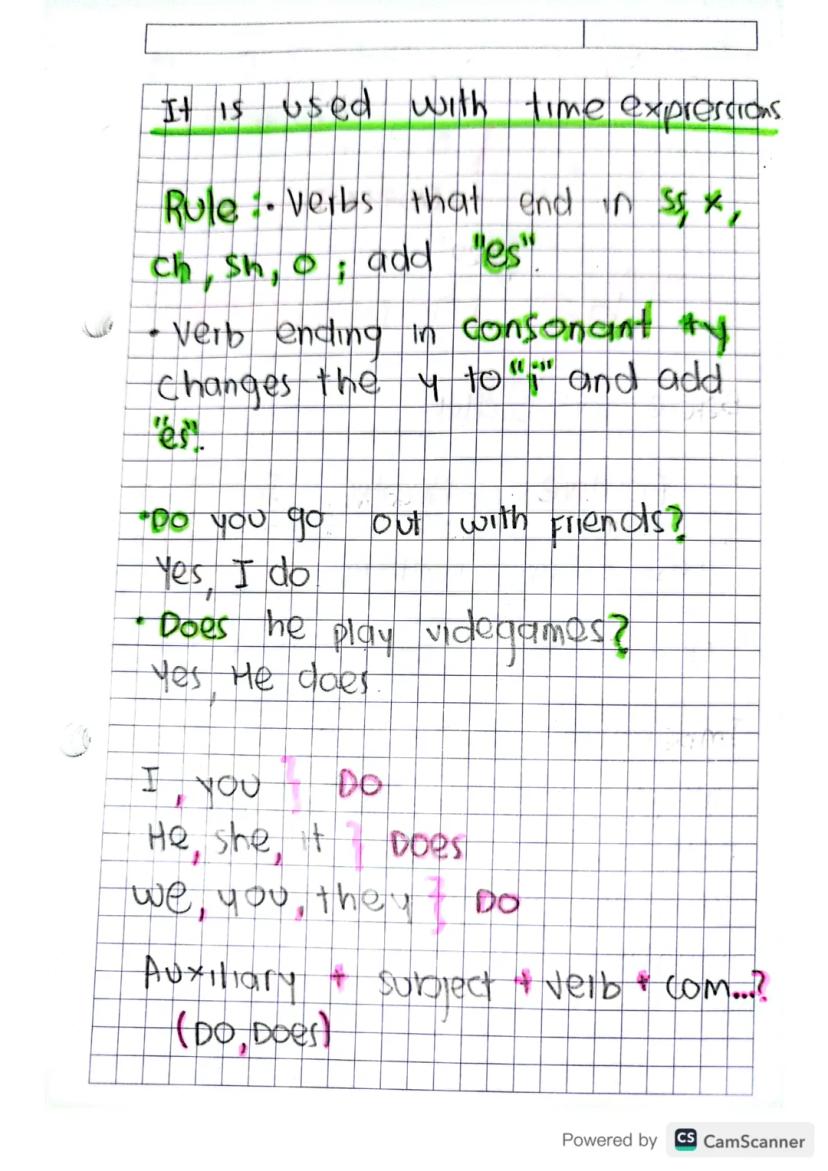 It is used with time expressions
Rule :· Verbs that end in ss, x,
ch, sh, o ; add "es".
· Verb ending in consonant +y
changes the y to "i" and add
"es".
·Do you go out with Friends?
Yes, I do
· Does he play videgames?
Yes, He does.
I, you } DO
He, she, it } Does
we, you, they } DO
Auxiliary + subject + verb + com...?
(DO, Does)
Powered by CS CamScanner